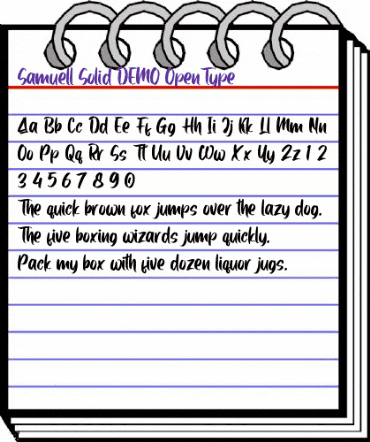 Samuell Solid DEMO OpenType
Aa Bb Cc Dd Ee Ff Gg Hh Ii Jj Kk Ll Mm Nn
Oo Pp Qq Rr Ss Tt Uu Vv Ww Xx Yy Zz 1 2
3 4 5 6 7 8 9 0
The quick brown fox jumps over the lazy dog.
The five boxing wizards jump quickly.
Pack my box with five dozen liquor jugs.